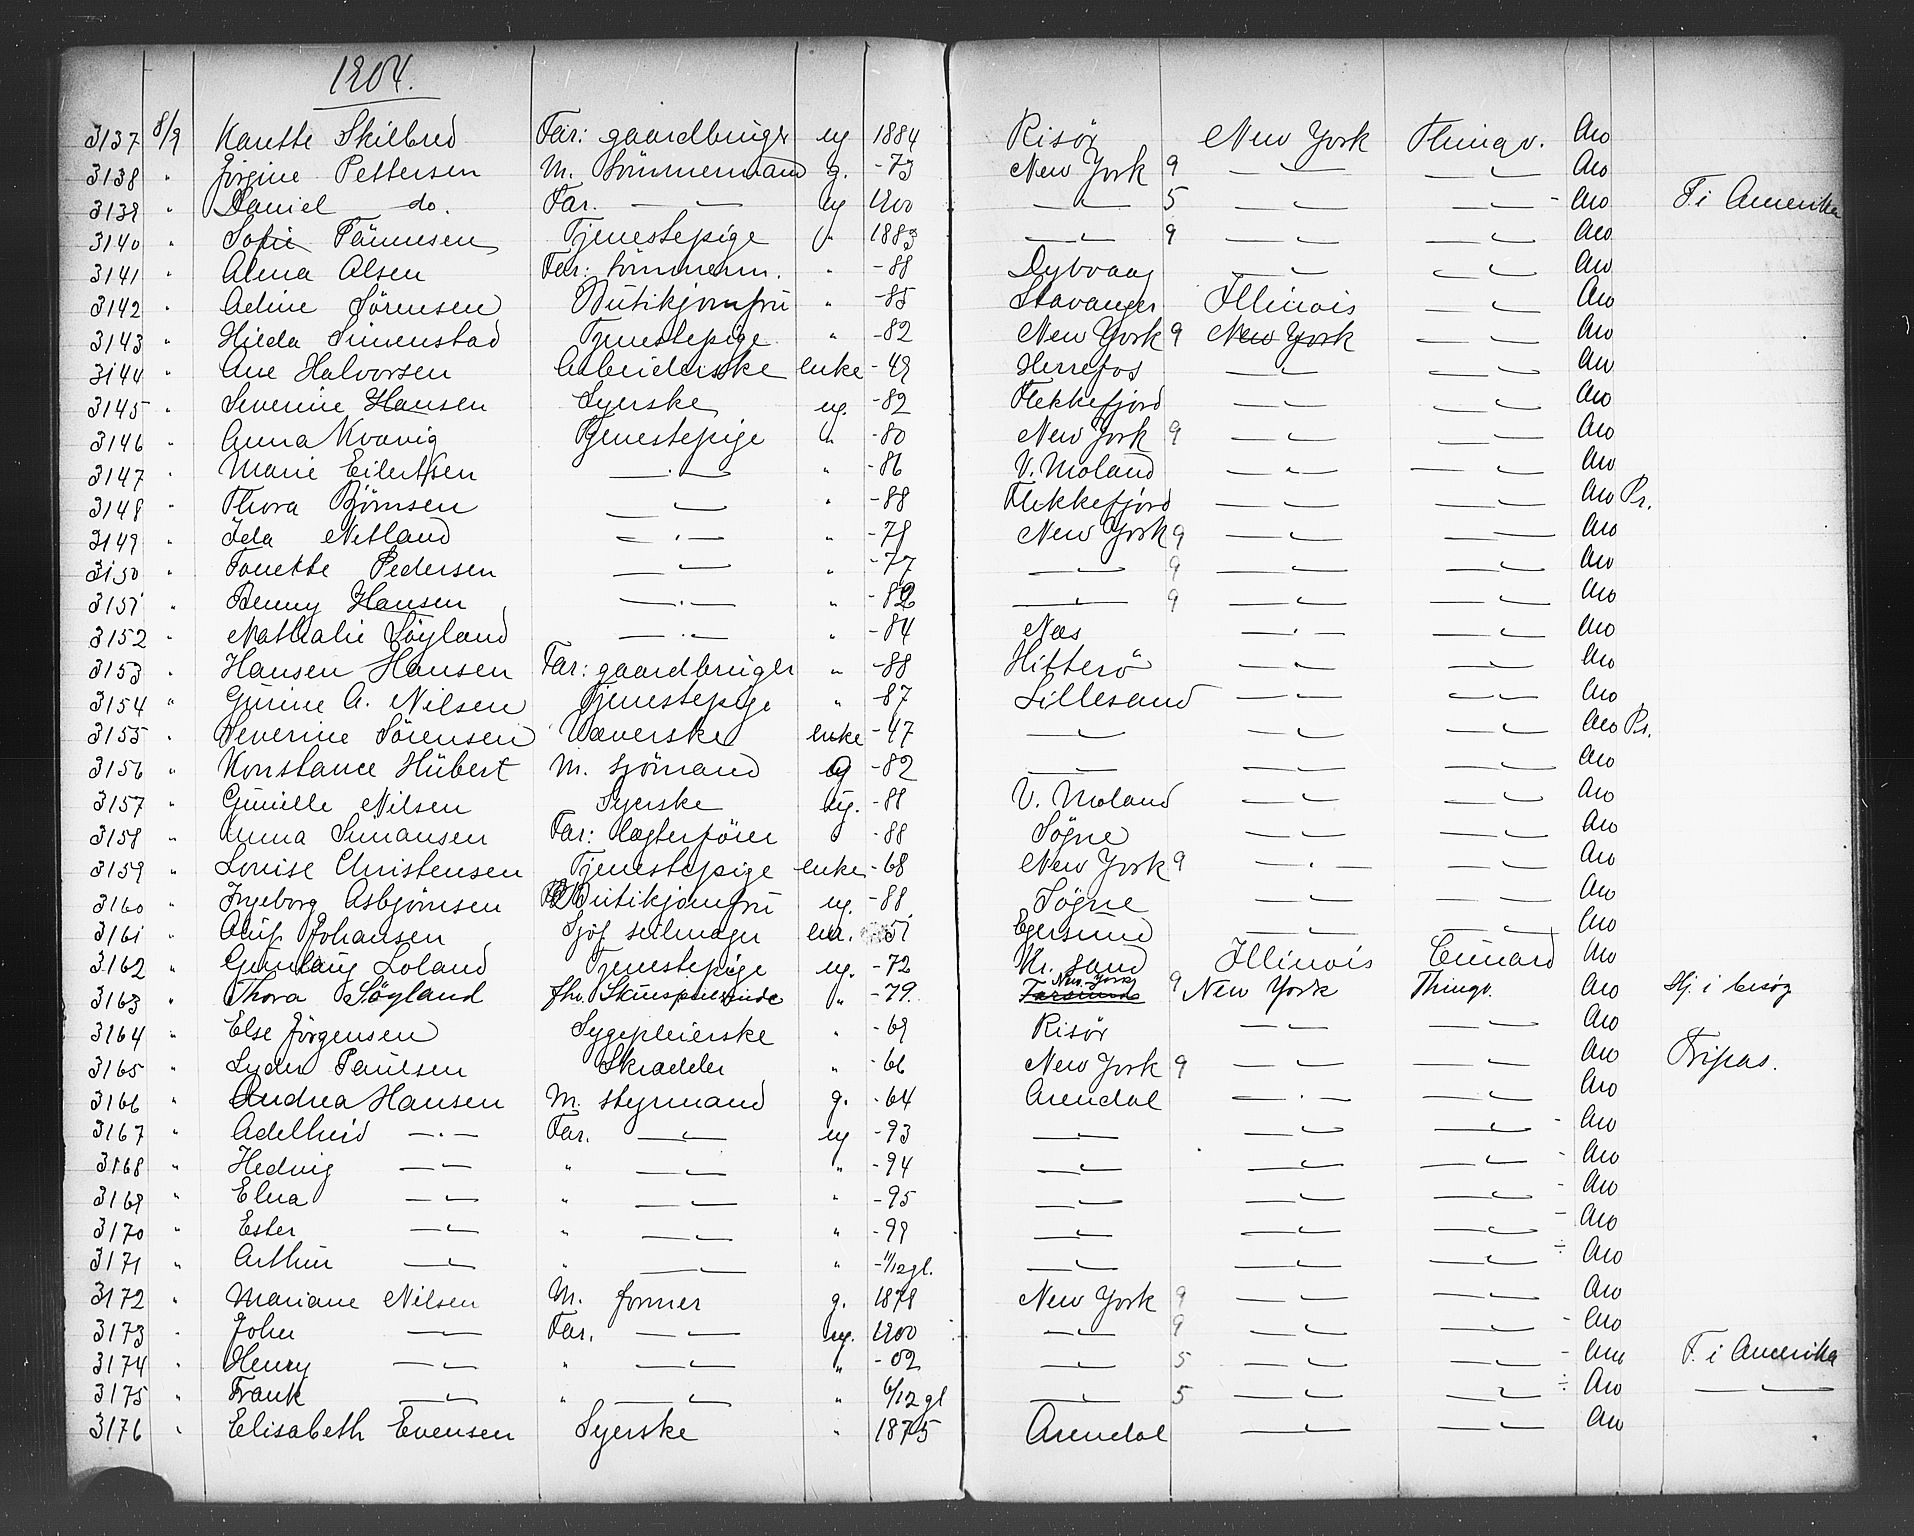 1904.
3137 8/9 Kanthe Skilbred Far: gaardbruger ug 1884 Risör New York Thingv. Aro
3138 " Jörgine Pettersen M. tömmermand g. -73 New York 9 —"— —"— Aro
3139 " Daniel do. Far. —"— ug 1900 —"— 5 —"— —"— - Aro F. i Amerika
3140 " Sofie Tönnesen Tjenestepige " 1883 —"— 9 —"— —"— Aro
3141 " Alma Olsen Far: tömmerm. " -88 Dybvaag —"— —"— Aro
3142 " Adine Sörensen Butikjomfru " -85 Stavanger Illinois —"— Aro
3143 " Hilda Simenstad Tjenestepige " -82 New York 9 New York —"— Aro
3144 " Ane Halvorsen Arbeiderske enke -49 Herrefos —"— —"— Aro
3145 " Severine Hansen Syerske ug. -82 Flekkefjord —"— —"— Aro
3146 " Anna Kvavig Tjenestepige " -80 New York 9 —"— —"— Aro
3147 " Marie Eilertsen —"— " -86 V. Moland —"— —"— Aro
3148 " Thora Björnsen —"— " -88 Flekkefjord —"— —"— Aro Pr.
3149 " Ida Netland —"— " -79 New York 9 —"— —"— Aro
3150 " Tonette Pedersen —"— " -77 —"— 9 —"— —"— Aro
3151 " Benny Hansen —"— " -82 —"— 9 —"— —"— Aro
3152 " Nathalie Söyland —"— " -84 Næs —"— —"— Aro
3153 " Hansen Hansen Far: gaardbruger " -88 Hitterö —"— —"— Aro
3154 " Gunine A. Nilsen Tjenestepige " -87 Lillesand —"— —"— Aro
3155 " Severine Sörensen Væverske enke -47 —"— —"— —"— Aro Pr.
3156 " Konstance Hübert M. sjömand g -82 —"— —"— —"— Aro
3157 " Gunille Nilsen Syerske ug. -88 V. Moland —"— —"— Aro
3158 " Anna Simansen Far: lægterförer " -88 Sögne —"— —"— Aro
3159 " Louise Christensen Tjenestepige enke -68 New York 9 —"— —"— Aro
3160 " Ingeborg Asbjörnsen Butikjomfru ug. -88 Sögne —"— —"— Aro
3161 " Johansen Sjöf seilmager enr. 51 Egersund —"— —"— Aro
3162 " Gunlaug Loland Tjenestepige ug. -72 Kr. sand Illinois Cunard Aro
3163 " Thora Söyland fhv. Skuespillerinde " -79 New York 9 New York Thingv. Aro Hj. i besög
3164 " Else Jörgensen Sygepleierske " -69 Risör —"— —"— Aro
3165 " Lyder Paulsen Skrædder " -66 New York 9 —"— —"— Aro Fripas.
3166 " Andrea Hansen M. styrmand g. -64 Arendal —"— —"— Aro
3167 " Adelheid —"— Far. —"— ug -93 —"— —"— —"— - Aro
3168 " Hedvig —"— " —"— " -94 —"— —"— —"— - Aro
3169 " Elna —"— " —"— " -95 —"— —"— —"— - Aro
3170 " Ester —"— " —"— " -99 —"— —"— —"— - Aro
3171 " Arthur —"— " —"— " -11/12 gl. —"— —"— —"— ÷ Aro
3172 " Mariane Nilsen M. former g. 1878 New York 9 —"— —"— Aro
3173 " John —"— Far. —"— ug. 1900 —"— 9 —"— —"— - Aro
3174 " Henry —"— " —"— " -02 —"— 5 —"— —"— - Aro F. i Amerika
3175 " Frank —"— " —"— " 6/12 gl —"— 5 —"— —"— ÷ Aro —"—
3176 " Elisabeth Evensen Syerske " 1875 Arendal —"— —"— Aro